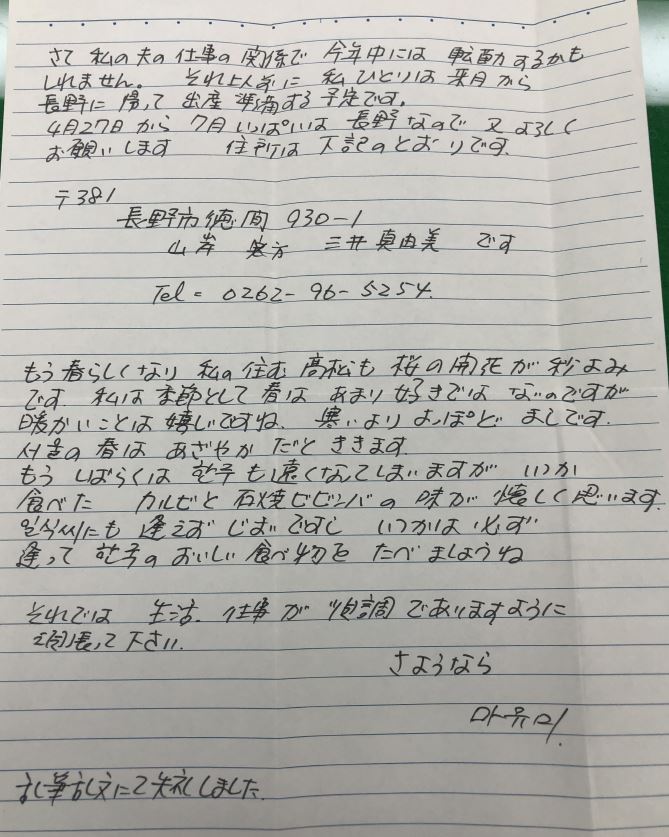 さて 私の夫の仕事の関係で 今年中には 転勤するかも
しれません。 それ以前に 私ひとりは 来月から
長野に 帰って 出産準備する予定です。
4月27日から 7月いっぱいは 長野なので 又よろしく
お願いします 住所は 下記のとおりです.
〒381
長野市徳間 930-1
山岸 方 三井真由美 です
Tel = 0262-96-5254.
もう春らしくなり 私の住む 高松も 桜の開花が秒よみ
です 私は 季節として 春は あまり 好きでは ないのですが
暖かいことは 嬉しいですね. 寒いより よっぽど ましです.
서울の 春は あざやか だと ききます.
もう しばらくは 한국も遠くなってしまいますが いつか
食べた カルビと 石焼ビビンバの 味が 懐しく 思います.
일식씨にも 逢えず じまいですし いつかは 必ず
逢って 한국の おいしい 食べ物を たべましょうね
それでは 生活. 仕事が 順調 でありますように
頑張って下さい.
さようなら
マユミ!
乱筆乱文にて失礼しました.